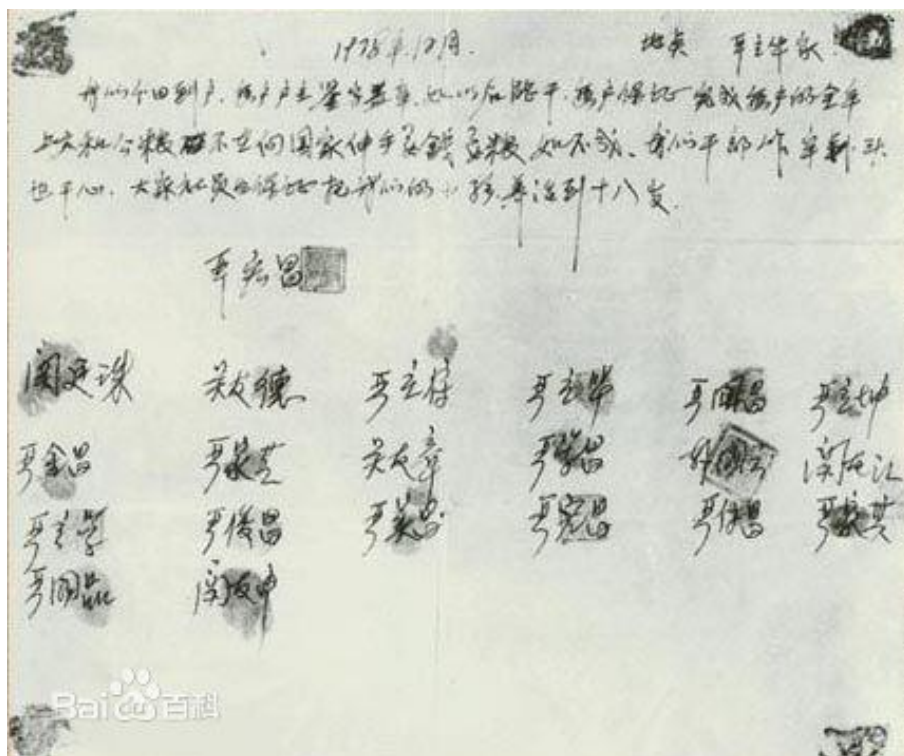 1978年12月. 地点 严立华家
我们分田到户,每户户主签字盖章,如以后能干,每户保证完成每户的全年
上交和公粮 不在向国家伸手要钱要粮 如不成,我们干部作牢剎头
也干心,大家社员也保证把我们的小孩养活到十八岁.
严宏昌
关廷珠 关友德 严立符 严立华 严国昌 严立坤
严金昌 严家芝 关友章 严学昌 韩国云 关友江
严立学 严俊昌 严美昌 严宏昌 严付昌 严家其
严国品 关友申
Bai 百科